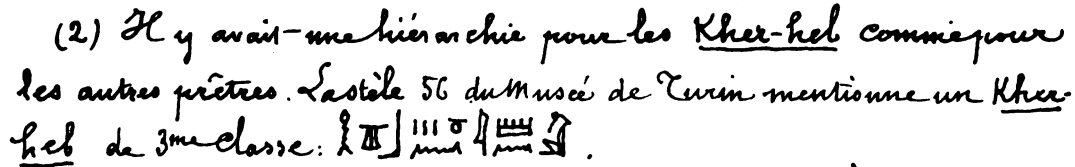 (2) Il y avait une hiérarchie pour les Kher-heb comme pour
les autres prêtres. La stèle 56 du Musée de Turin mentionne un Kher-
heb de 3me classe: